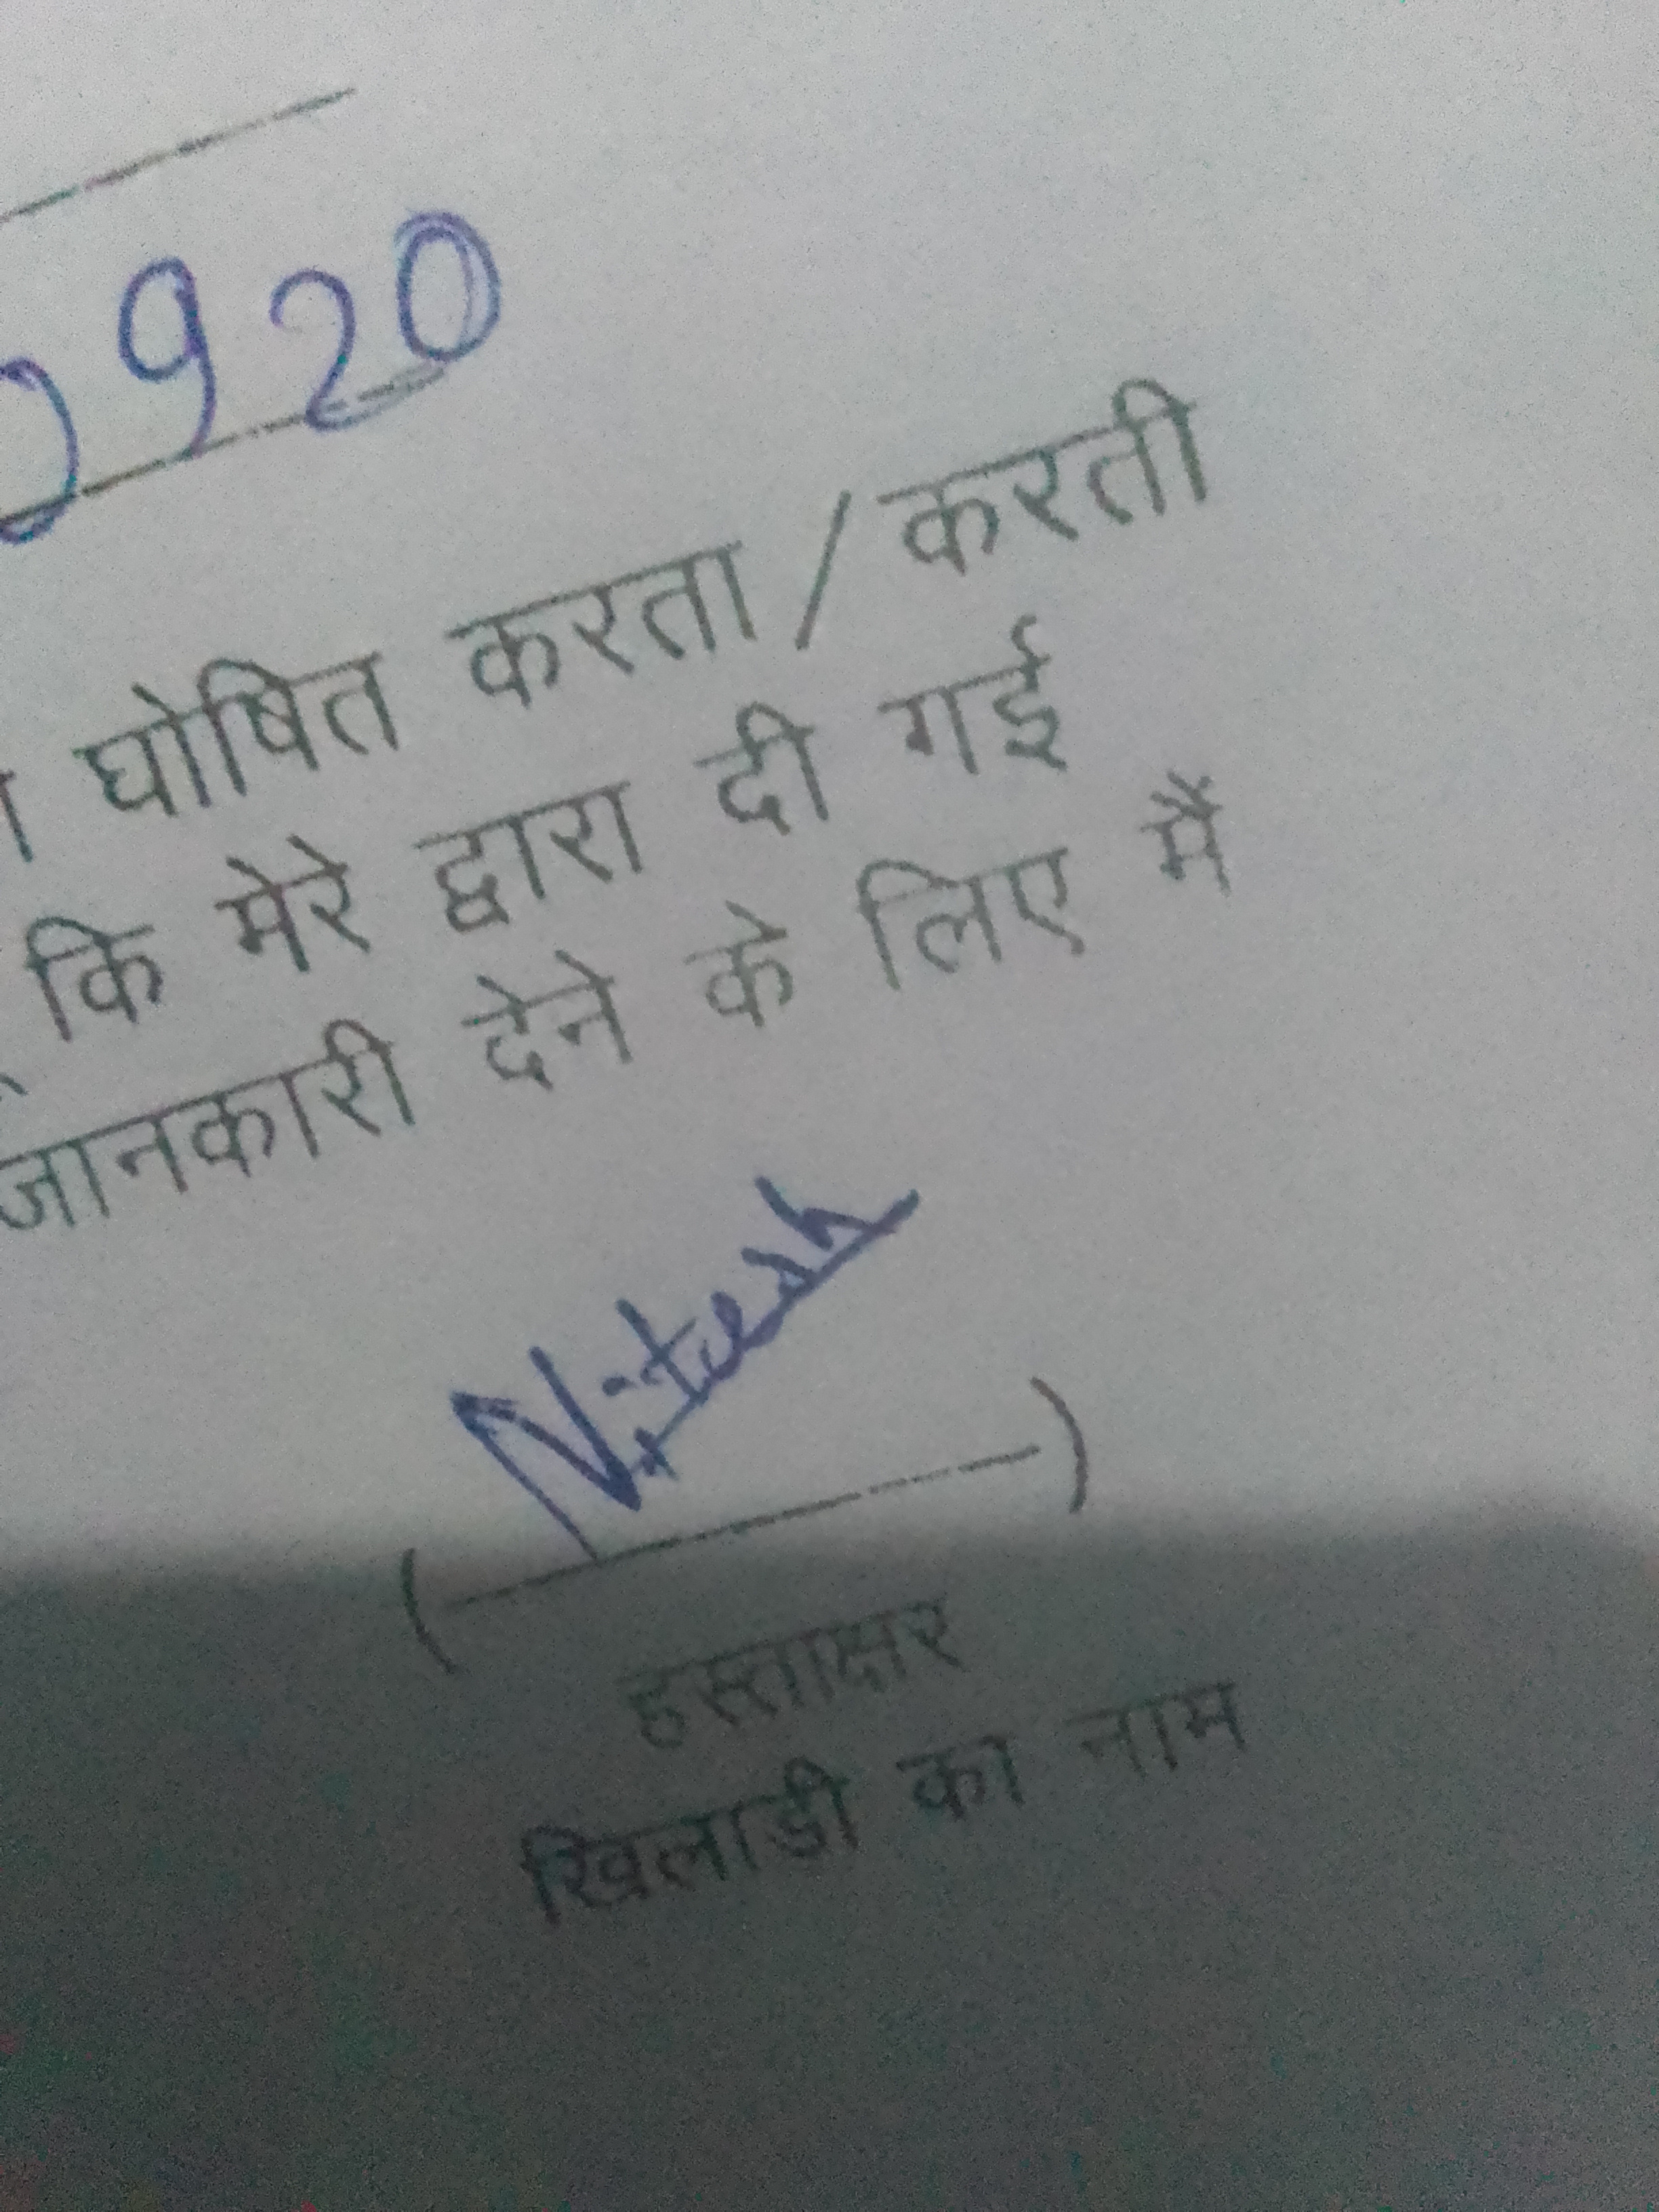 920
घोषित करता / करती
कि मेरे द्वारा दी गई
जानकारी देने के लिए मैं
Nitesh
( )
हस्ताक्षर
खिलाडी का नाम